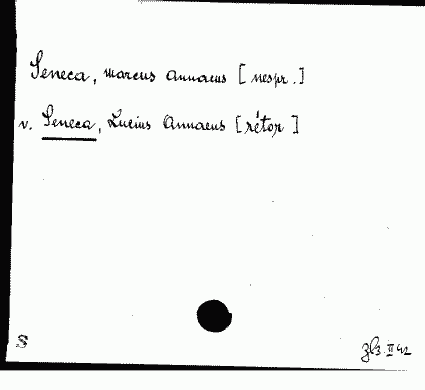 Seneca, Marcus Annaeus [nespr.]
v. Seneca, Lucius Annaeus [rétor]
S
II 42